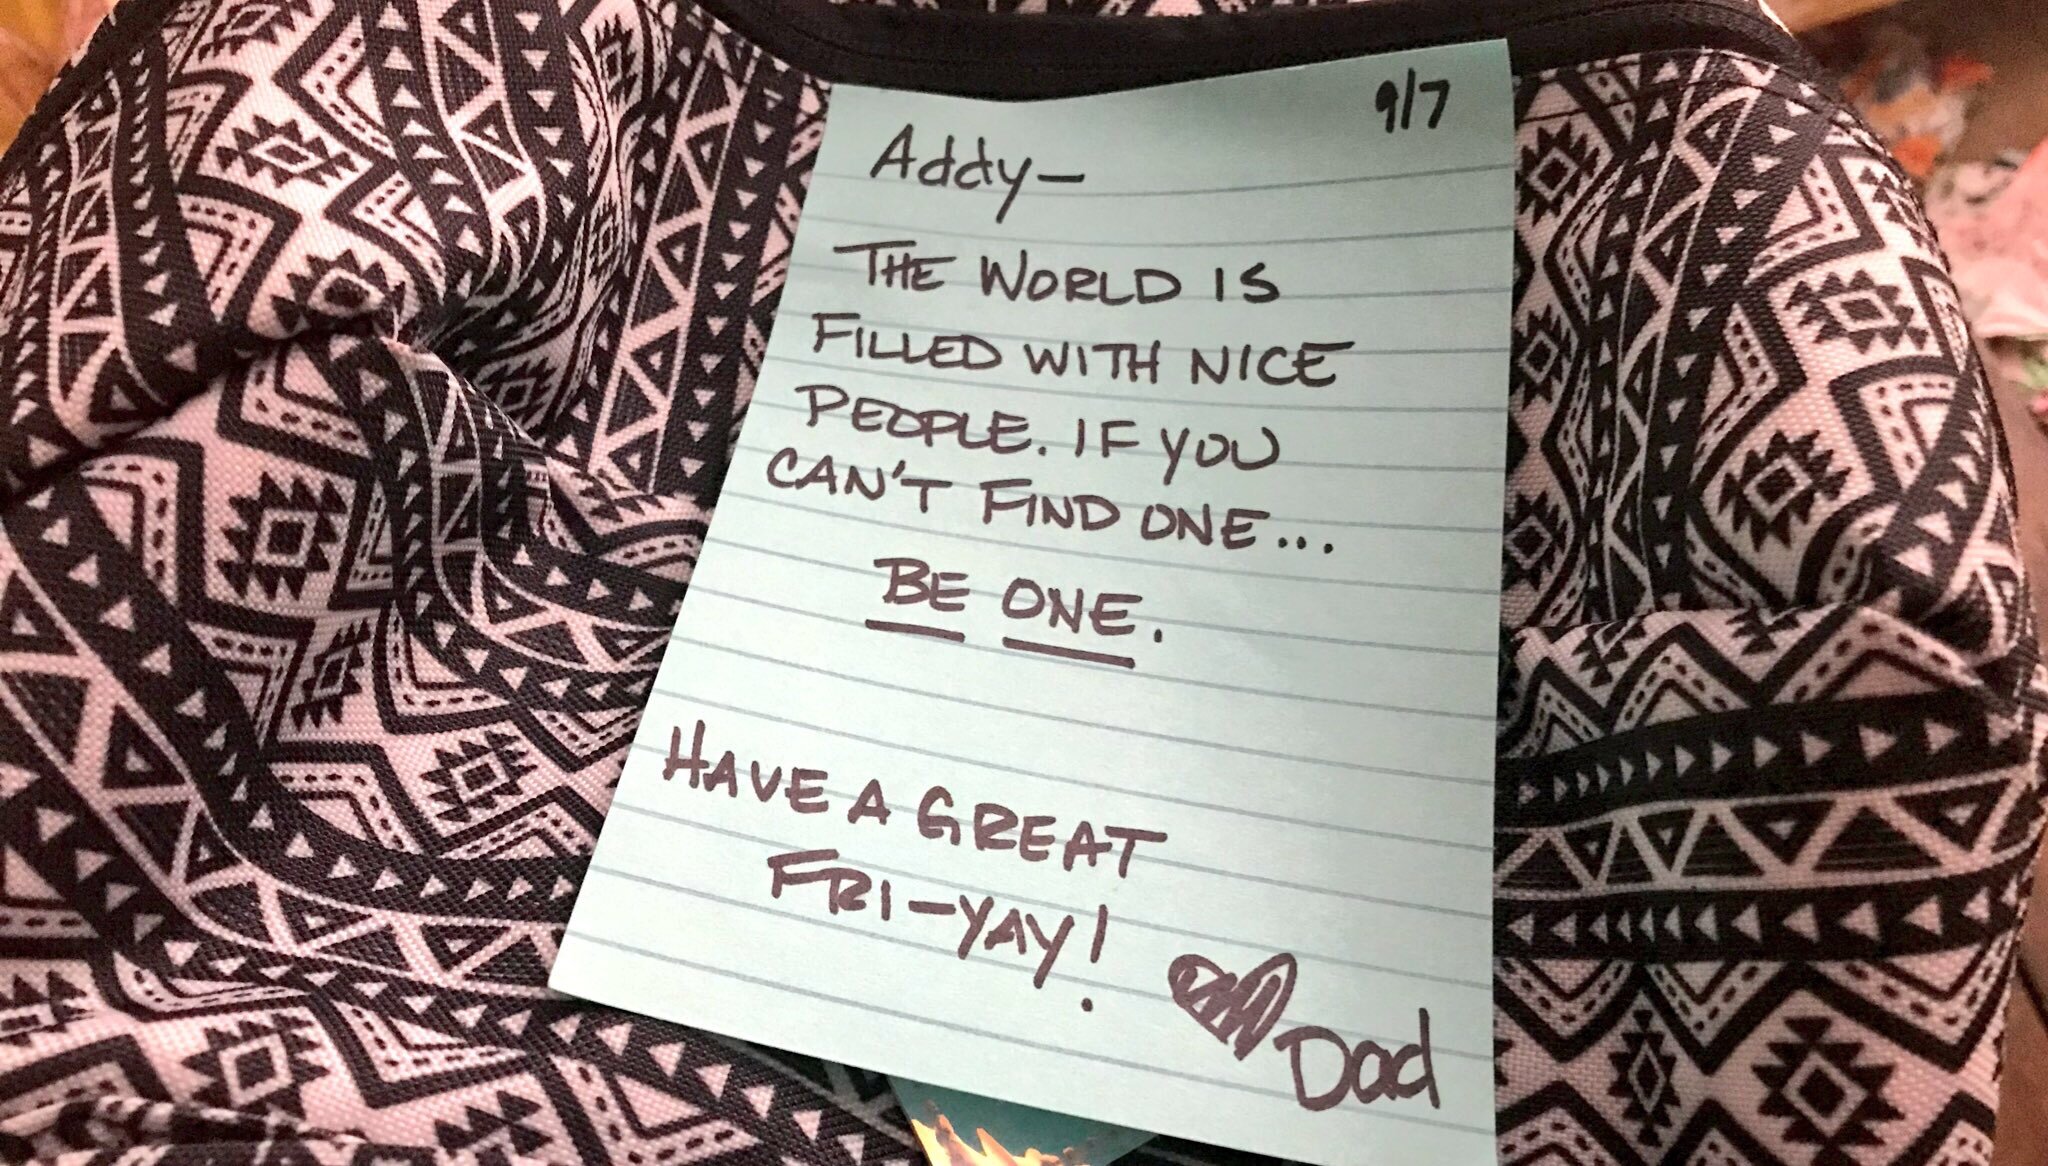 9/7
Addy—
THE WORLD IS
FILLED WITH NICE
PEOPLE. IF YOU
CAN'T FIND ONE...
BE ONE.
HAVE A GREAT
FRI-YAY!
Dad